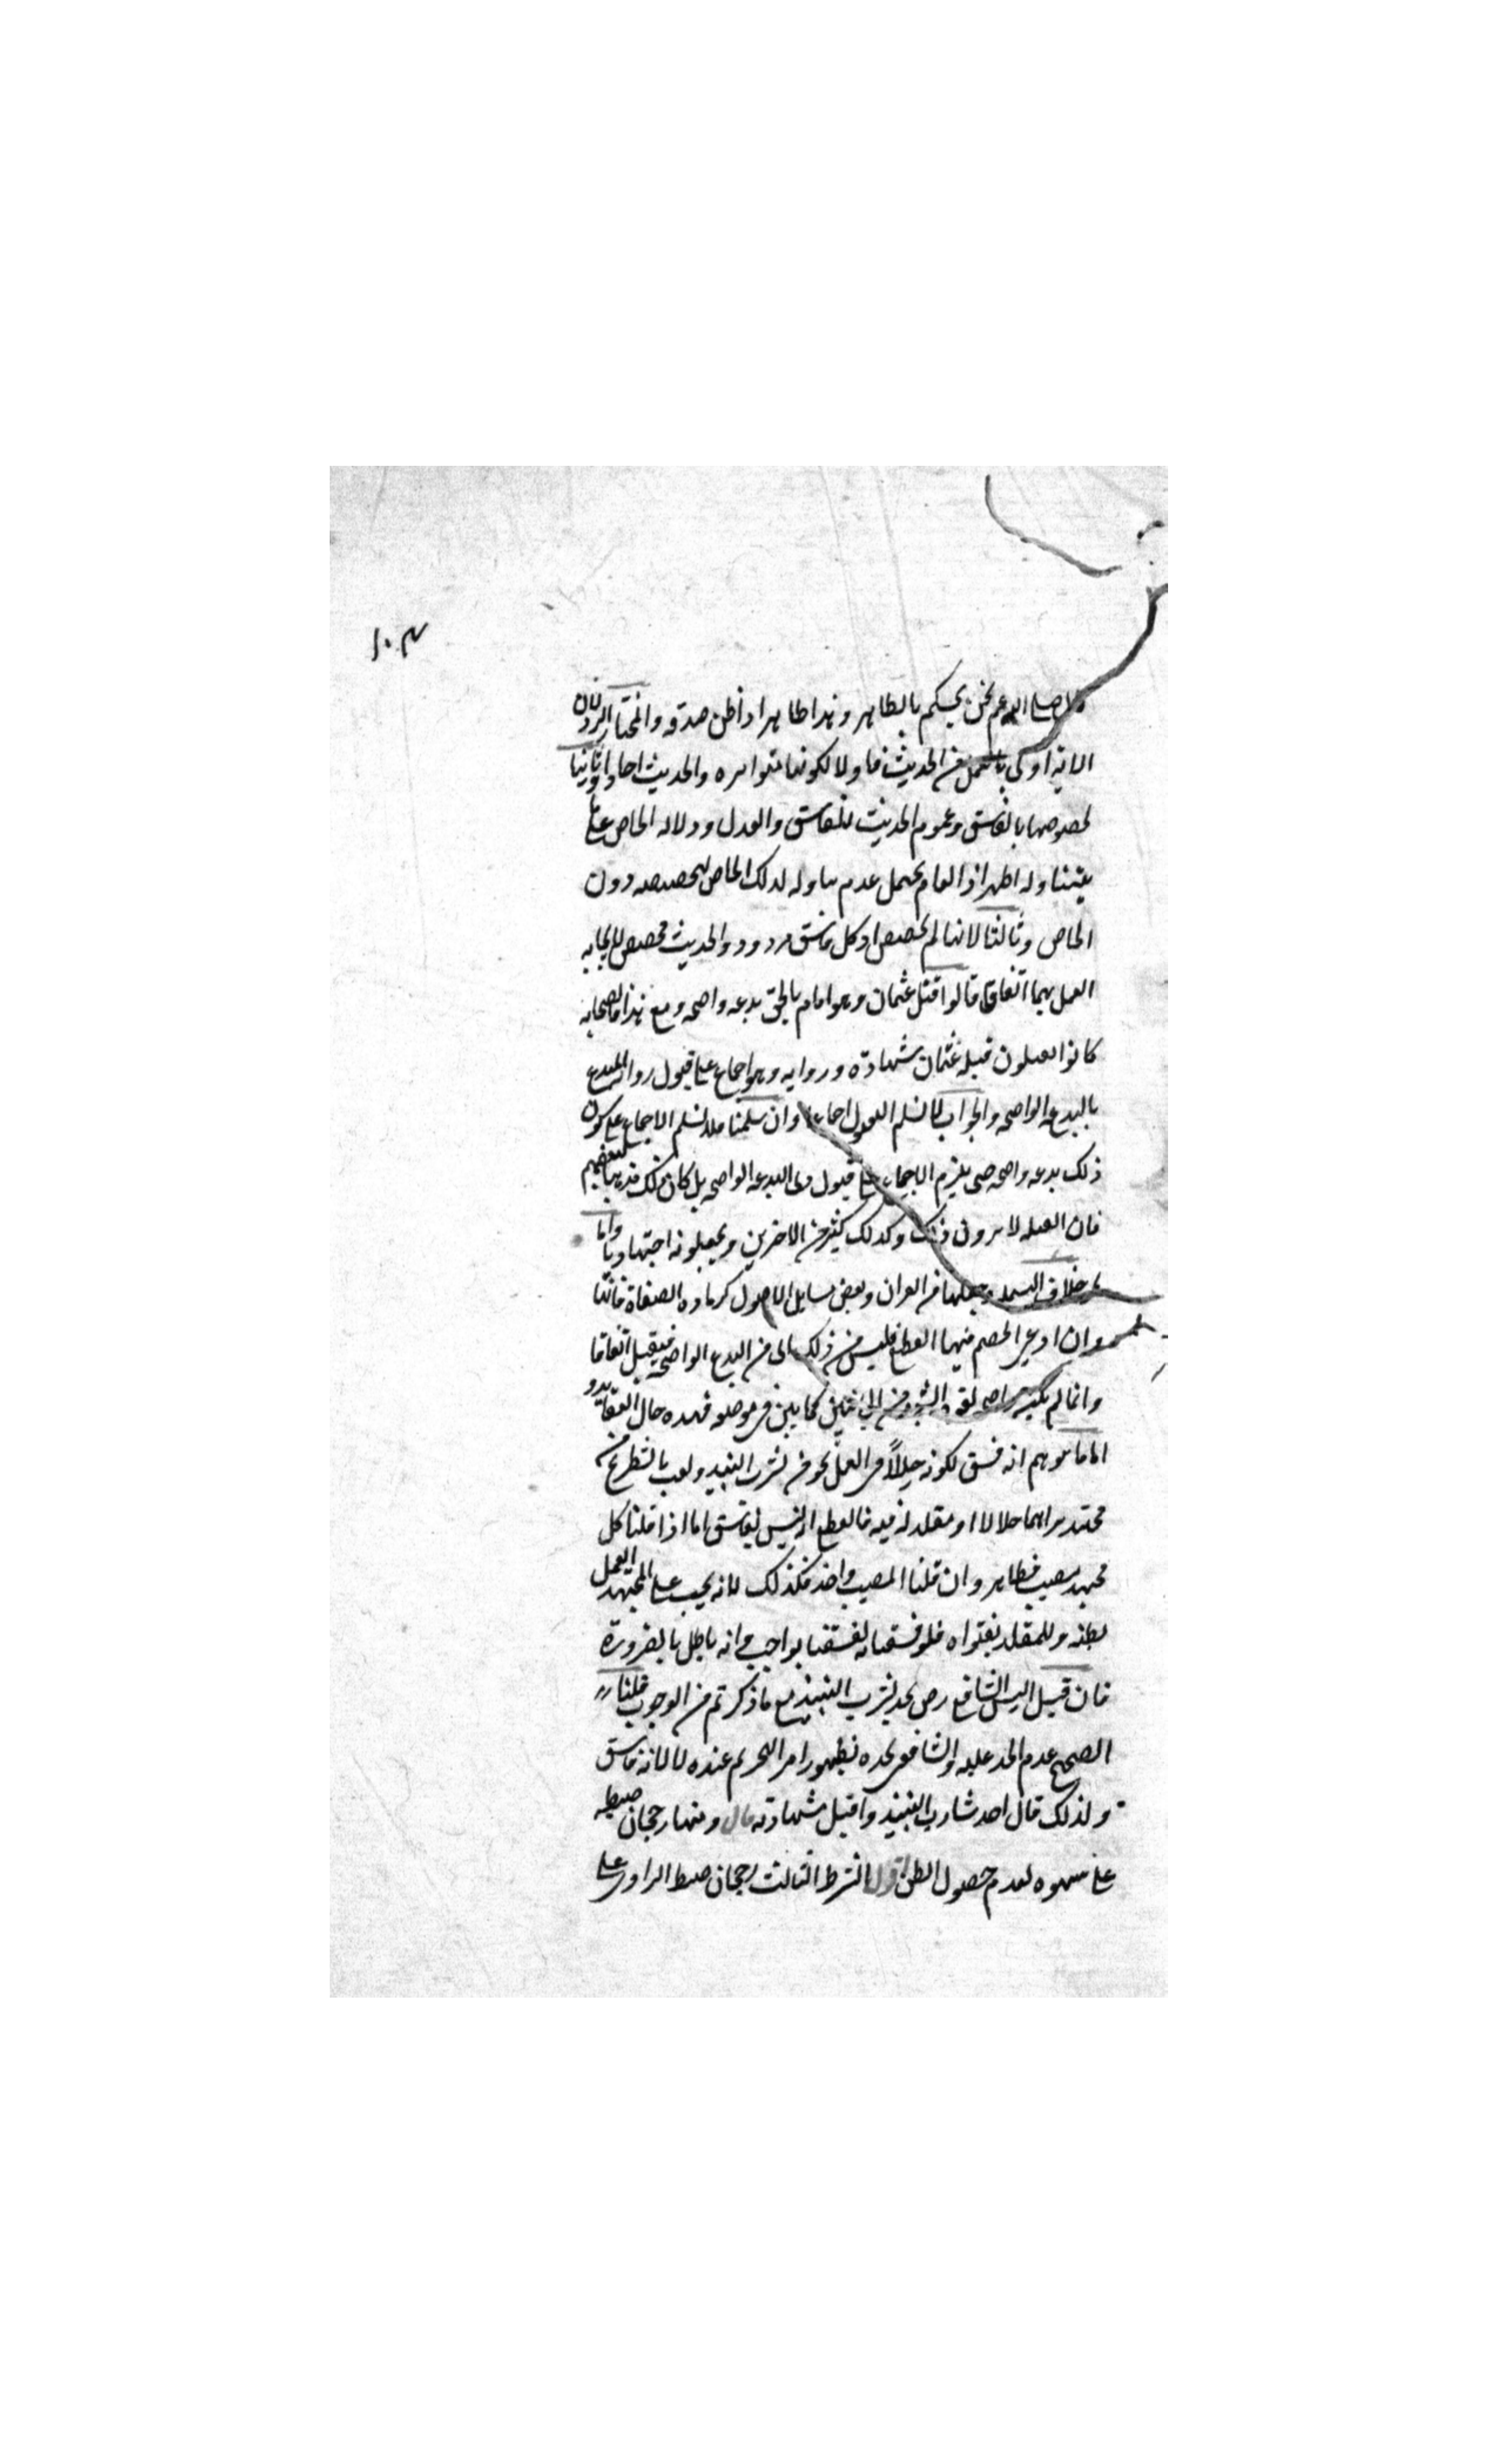 ١٠٣
صلى الله عم نحن نحكم بالظاهر وهذا ظاهر اذ اظن صدقه والمختار الرد لان
الاية اولى بالعمل من الحديث فاولا لكونها متواتره والحديث احادا وثانيا
لخصوصها بالفاسق وعموم الحديث للفاسق والعدل ودلالة الخاص على
يتناوله اظهر اذ العام يحتمل عدم تناوله لذلك الخاص لتخصيصه دون
الخاص وثالثا لانها لم تخصص اذ كل فاسق مردود والحديث مخصص
العمل بهما اتفاقا قالوا قتل عثمان وهو امام بالحق بدعه واضحه ومع هذا فالصحابه
كانوا يقبلون قبله عثمان شهادة وروايه وهو اجماع على قبول رواية المبتدع
بالبدعه الواضحه والجواب لا نسلم القبول اجماعا وان سلمنا فلا نسلم الاجماع على كون
ذلك بدعه واضحه حتى يلزم الاجماع على قبول ذي البدعه الواضحه بل كان ذلك مذهبا لبعضهم
فان القتله لا يرون ذلك وكذلك كثير من الاخرين ويجعلونه اجتهاديا واما
خلاف البسملة وجعلها من القران وبعض مسايل الاصول كزيادة الصفاة فانها
وان ادعى الخصم فيهما القطع فليس من ذلك اى من البدع الواضحه فيقبل اتفاقا
وانما لم يكن من واضحه لقوة الشبهة من الجانبين كما يبين في موضعه فهذه حال العقايد و
اما ما يوهم انه فسق لكونه خللا في العمل نحو من يشرب النبيذ ولعب بالشطرنج من
مجتهد يراهما حلالا او مقلد له فيه فالقطع انه ليس بفاسق اما اذا قلنا كل
مجتهد مصيب فظاهر وان قلنا المصيب واحد فكذلك لانه يجب على المجتهد العمل
بظنه وللمقلد بفتواه فلو فسقناه لفسقنا بواجب وانه باطل بالضرورة
فان قيل اليس الشافعي رض يحد بشرب النبيذ مع ما ذكرتم من الوجوب قلنا
الصحيح عدم الحد عليه والشافعى يحده لظهور امر التحريم عنده لا لانه فاسق
ولذلك قال احد شارب النبيذ واقبل شهادته قال ومنها رجحان ضبطه
على سهوه لعدم حصول الظن اقول الشرط الثالث رجحان ضبط الراوى على